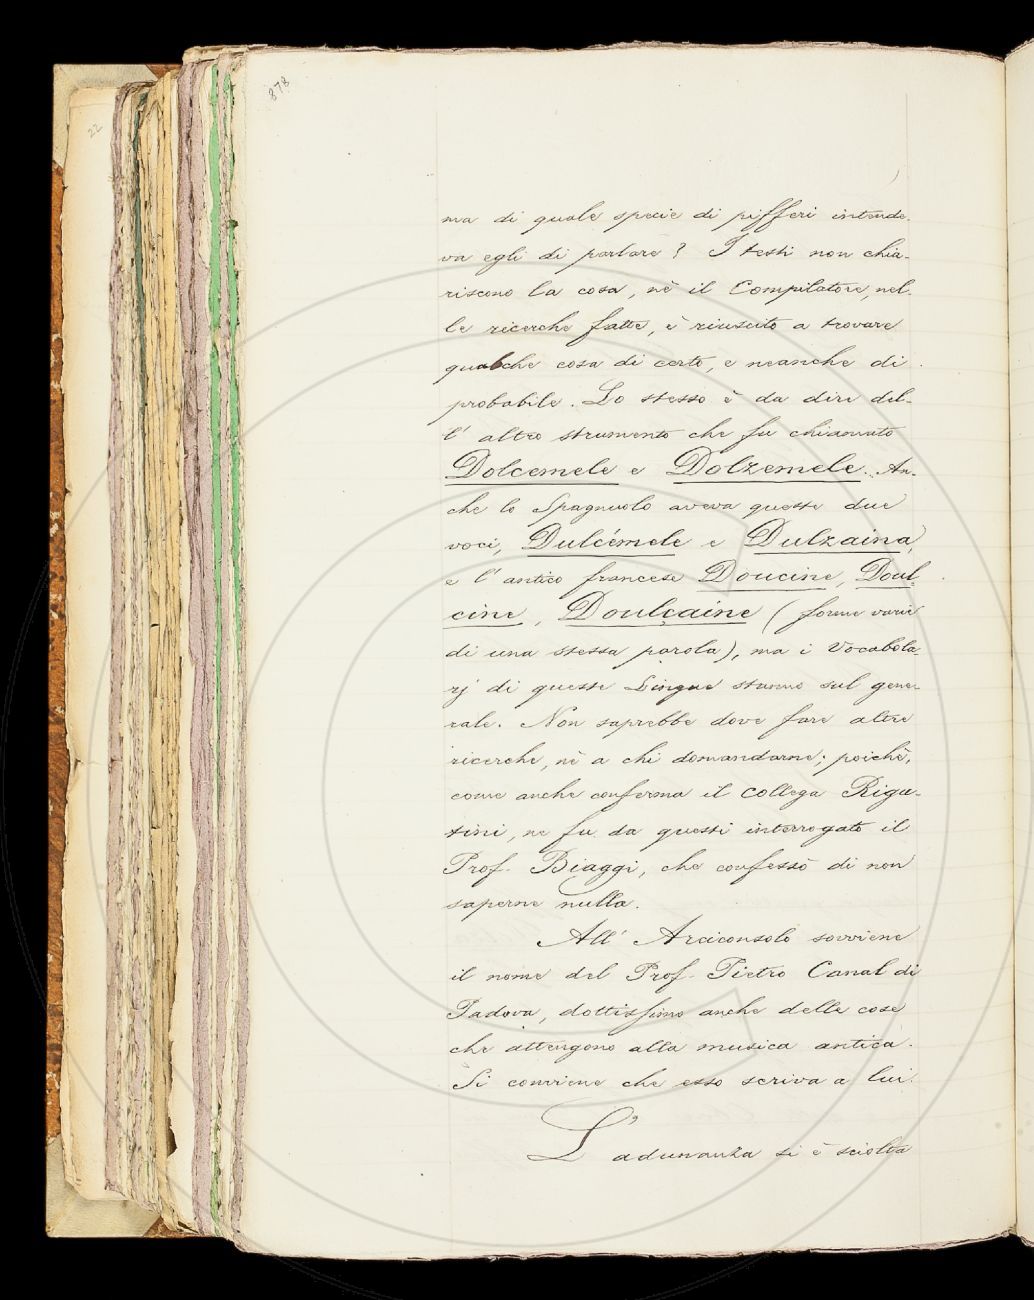 22
878
ma di quale specie di pifferi intende-
va egli di parlare? I testi non chia-
riscono la cosa, nè il Compilatore, nel-
le ricerche fatte, è riuscito a trovare
qualche cosa di certo, e neanche di
probabile. Lo stesso è da dire del-
l'altro strumento che fu chiamato
Dolcemele e Dolzemele. An-
che lo Spagnuolo aveva queste due
voci, Dulcémele e Dulzaina,
e l'antico francese Doucine, Doul-
cine, Doulçaine (forme varie
di una stessa parola), ma i Vocabola-
rj di queste Lingue stanno sul gene-
rale. Non saprebbe dove fare altre
ricerche, nè a chi domandarne; poichè,
come anche conferma il Collega Rigu-
tini, ne fu da questi interrogato il
Prof. Biaggi, che confessò di non
saperne nulla.
All'Arciconsolo sovviene
il nome del Prof. Pietro Canal di
Padova, dottissimo anche delle cose
che attengono alla musica antica.
Si conviene che esso scriva a lui.
L'adunanza si è sciolta